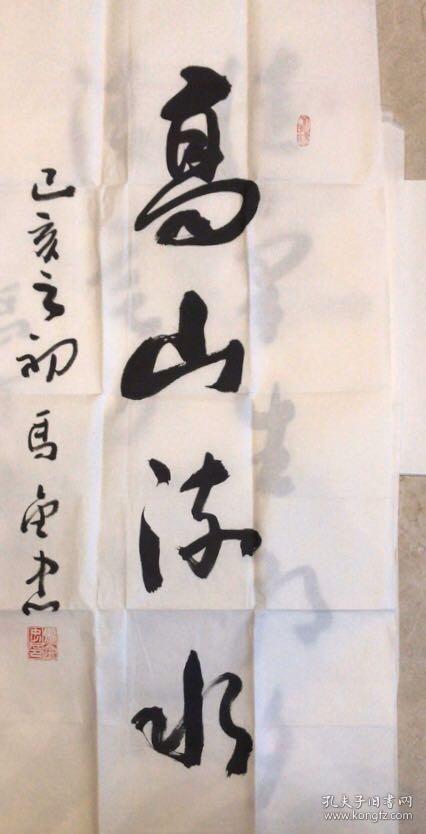 高山流水
己亥之初 马金忠
孔夫子旧书网
www.kongfz.com